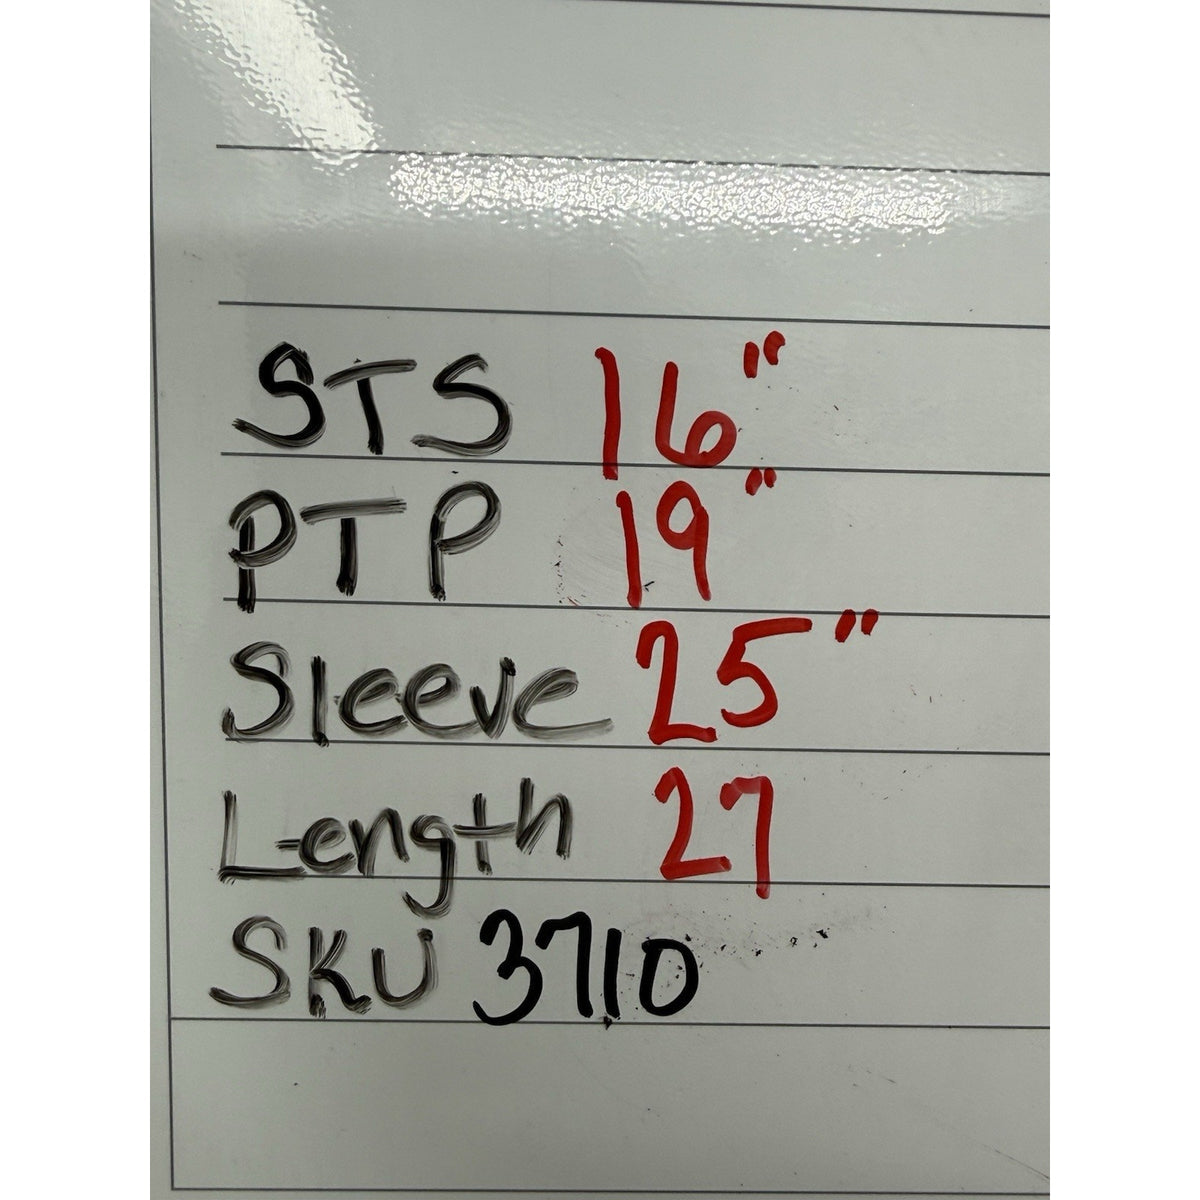 STS 16"
PTP 19"
Sleeve 25"
Length 27
SKU 3710